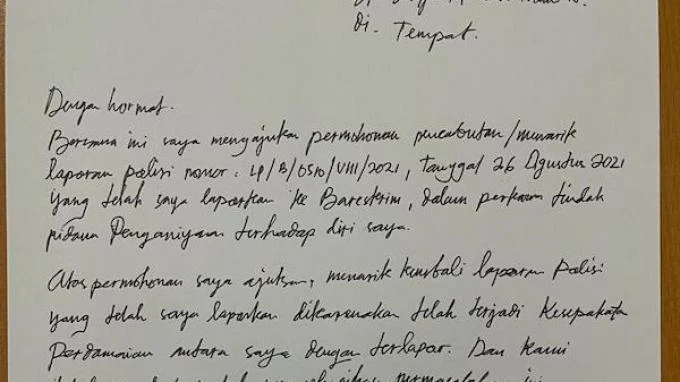 di.
Tempat.
Dengan hormat.
Bersama ini saya mengajukan permohonan pencabutan/menarik
laporan polisi nomor : LP/B/0510/VIII/2021, tanggal 26 Agustus 2021
yang telah saya laporkan ke Bareskrim, dalam perkara tindak
pidana Penganiyaan terhadap diri saya.
Atas permohonan saya ajukan, menarik kembali laporan Polisi
yang telah saya laporkan dikarenakan telah terjadi Kesepakata
Perdamaian antara saya dengan terlapor. Dan Kami